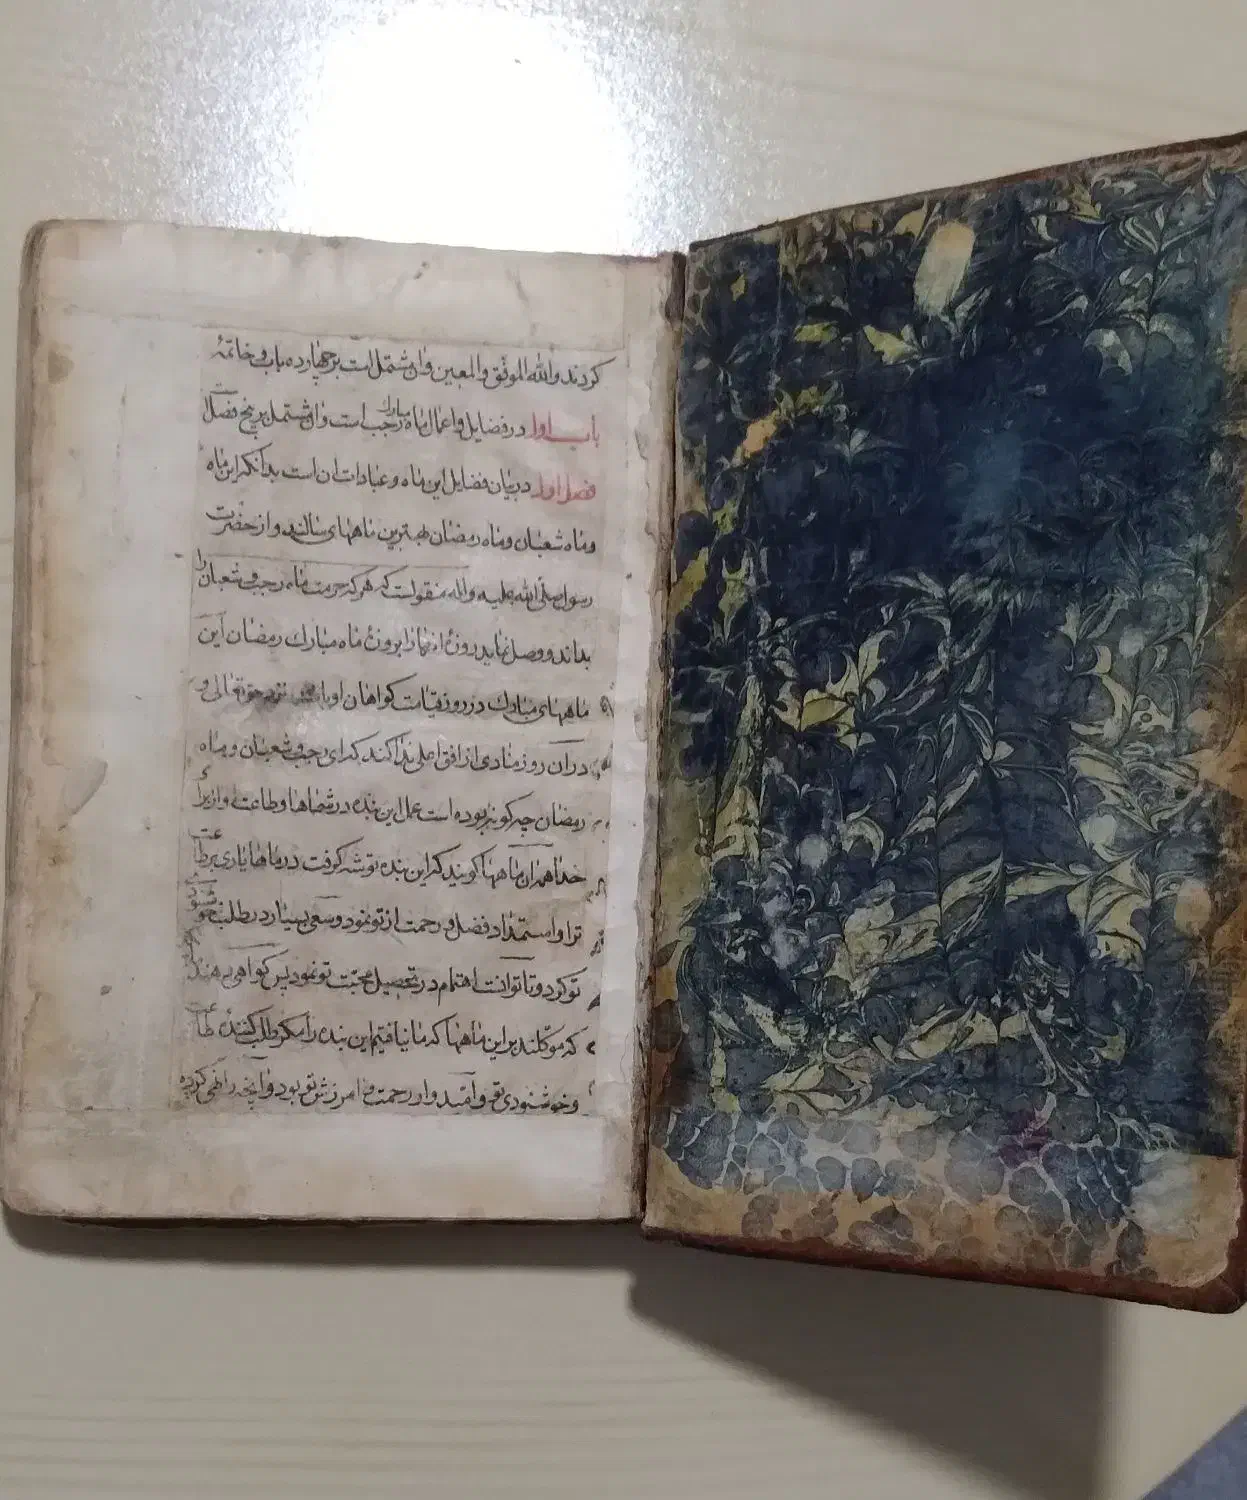 کردند والله الموفق والمعین وان مشتملست بر چهارده باب و خاتمهٔ
باب اول در فضایل و اعمال ماه مبارک رجب است و ان مشتمل بر پنج فصل
فصل اول در بیان فضایل این ماه و عبادات ان است بدانکه این ماه
و ماه شعبان و ماه رمضان بهترین ماههای سالند و از حضرت
رسول صلی الله علیه واله منقولست که هر که حرمت ماه رجب و شعبان را
بداند و وصل نماید روزهٔ انها را بروزهٔ ماه مبارک رمضان این
ماههای مبارک در روز قیامت کواهان او باشند نزد حق تعالی و
دران روز منادی از افق اعلی ندا کند که ای رجب و شعبان و ماه
رمضان چه کونه بوده است عمل این بنده در شماها و طاعت او از برای
خدا همه ان ماهها کویند که این بنده توشه کرفت در ماها یاری بر طاعت
ترا و استمداد فضل و رحمت از تو نمود و سعی بسیار در طلب خوشنودی
تو کرد و تا توانست اهتمام در تحصیل محبت تو نمود پس کواهی دهند
که موکلند بر این ماهها که ما نیافتیم این بنده را مکر طلب کننده طاعت
و خوشنودی تو و امیدوار رحمت و امرزش تو بود و انچه را نهی کرده